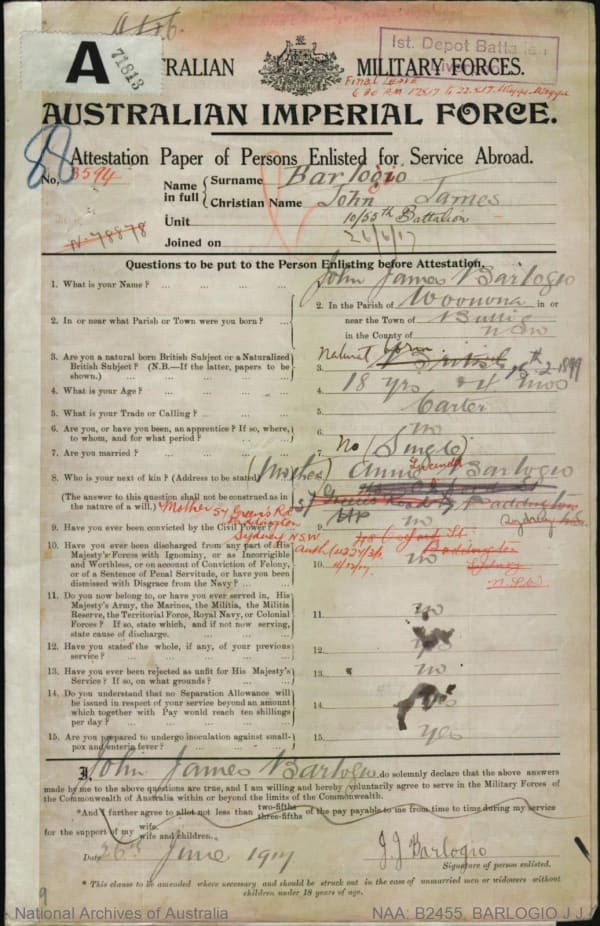 A 71813
1st. Depot Battalion
AUSTRALIAN MILITARY FORCES.
Final Leave
AUSTRALIAN IMPERIAL FORCE.
Attestation Paper of Persons Enlisted for Service Abroad.
No. 3594
Name in full { Surname Barlogio
Christian Name John James
Unit 10/55th Battalion
N. 78878
Joined on 26/6/17
Questions to be put to the Person Enlisting before Attestation.
1. What is your Name ? ... ... ... ... John James Barlogio
2. In or near what Parish or Town were you born ? ... 2. In the Parish of Woonona in or
near the Town of Bulli
in the County of NSW
3. Are you a natural born British Subject or a Naturalized
British Subject ? (N.B.—If the latter, papers to be
shown.) ... ... ... ... 3. Natural Born British
4. What is your Age ? ... ... ... ... 4. 18 yrs & 4 mos
5. What is your Trade or Calling ? ... ... ... 5. Carter
6. Are you, or have you been, an apprentice ? If so, where,
to whom, and for what period ? ... ... 6. no
7. Are you married ? ... ... ... ... 7. No (Single)
8. Who is your next of kin ? (Address to be stated) (Mother) Annie Lucinda Barlogio
(The answer to this question shall not be construed as in
the nature of a will.) Mother 57 Greens Rd
Paddington
Sydney NSW
57 Greens Road Paddington
Sydney
9. Have you ever been convicted by the Civil Power ? 9. no
10. Have you ever been discharged from any part of His
Majesty's Forces with Ignominy, or as Incorrigible
and Worthless, or on account of Conviction of Felony,
or of a Sentence of Penal Servitude, or have you been
dismissed with Disgrace from the Navy ? ... 10. no
Paddington
Sydney
N.S.W.
11. Do you now belong to, or have you ever served in, His
Majesty's Army, the Marines, the Militia, the Militia
Reserve, the Territorial Force, Royal Navy, or Colonial
Forces ? If so, state which, and if not now serving,
state cause of discharge. ... ... ... 11. no
12. Have you stated the whole, if any, of your previous
service ? ... ... ... ... 12.
13. Have you ever been rejected as unfit for His Majesty's
Service ? If so, on what grounds ? ... ... 13. no
14. Do you understand that no Separation Allowance will
be issued in respect of your service beyond an amount
which together with Pay would reach ten shillings
per day ? ... ... ... ... 14. yes
15. Are you prepared to undergo inoculation against small-
pox and enteric fever ? ... ... ... 15. yes
I, John James Barlogio do solemnly declare that the above answers
made by me to the above questions are true, and I am willing and hereby voluntarily agree to serve in the Military Forces of
the Commonwealth of Australia within or beyond the limits of the Commonwealth.
*And I further agree to allot not less than two-fifths three-fifths of the pay payable to me from time to time during my service
for the support of my wife. wife and children.
Date 26th June 1917 J. J. Barlogio
Signature of person enlisted.
* This clause to be amended where necessary and should be struck out in the case of unmarried men or widowers without
children under 18 years of age.
National Archives of Australia NAA: B2455, BARLOGIO J J